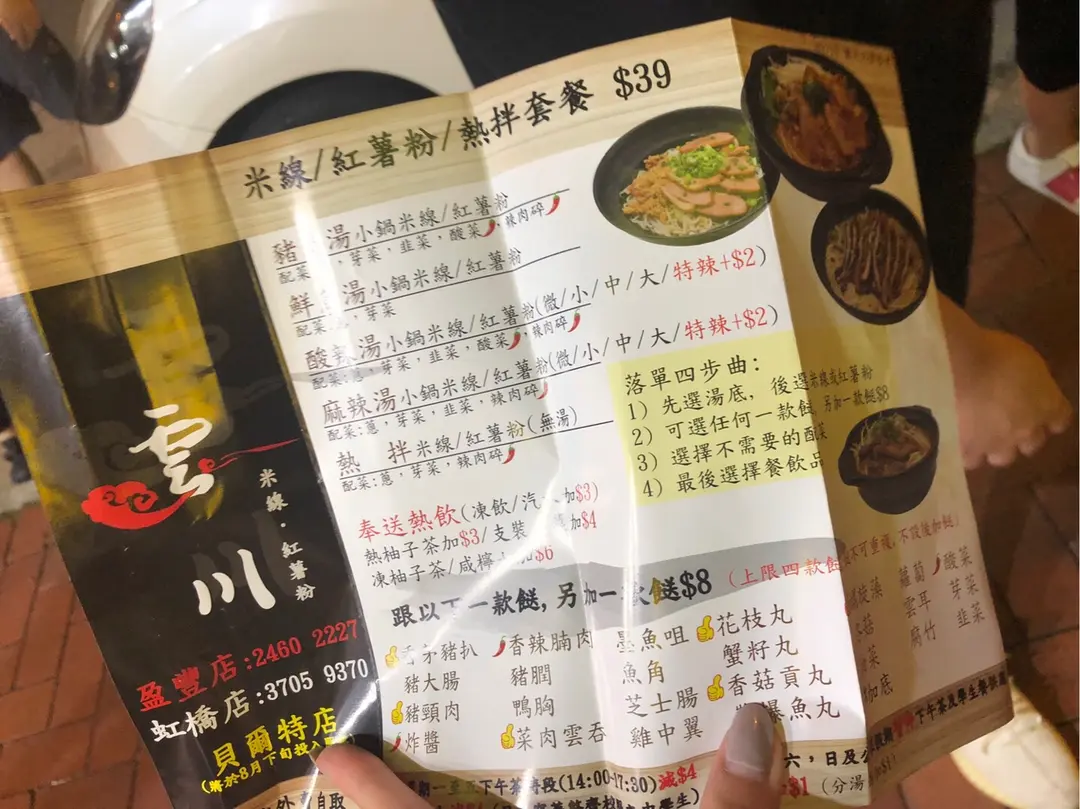 米線/紅薯粉/熱拌套餐 $39
豬 湯小鍋米線/紅薯粉
配菜 ，芽菜，韭菜，酸菜，辣肉碎
鮮 湯小鍋米線/紅薯粉
配菜:蔥，芽菜
酸辣湯小鍋米線/紅薯粉(微/小/中/大/特辣+$2)
配菜:蔥，芽菜，韭菜，酸菜，辣肉碎
麻辣湯小鍋米線/紅薯粉(微/小/中/大/特辣+$2)
配菜:蔥，芽菜，韭菜，辣肉碎
熱 拌米線/紅薯粉(無湯)
配菜:蔥，芽菜，辣肉碎
落單四步曲:
1) 先選湯底, 後選米線或紅薯粉
2) 可選任何一款餸, 另加一款餸$8
3) 選擇不需要的配菜
4) 最後選擇餐飲品
奉送熱飲(凍飲/汽 加$3)
熱柚子茶加$3/支裝 加$4
凍柚子茶/咸檸 加$6
跟以下一款餸, 另加一款餸$8 (上限四款餸 不可重複, 不設後加餸)
香茅豬扒 香辣腩肉 墨魚咀 花枝丸
豬大腸 豬膶 魚角 蟹籽丸
豬頸肉 鴨胸 芝士腸 香菇貢丸
炸醬 菜肉雲吞 雞中翼 爆魚丸
蘿蔔 酸菜
雲耳 芽菜
腐竹 韭菜
雲川
米線·紅薯粉
盈豐店:2460 2227
虹橋店:3705 9370
貝爾特店
(將於8月下旬投入
外賣自取
下午茶時段(14:00-17:30)減$4
六, 日及公
下午茶及學生餐
+$1 (分湯